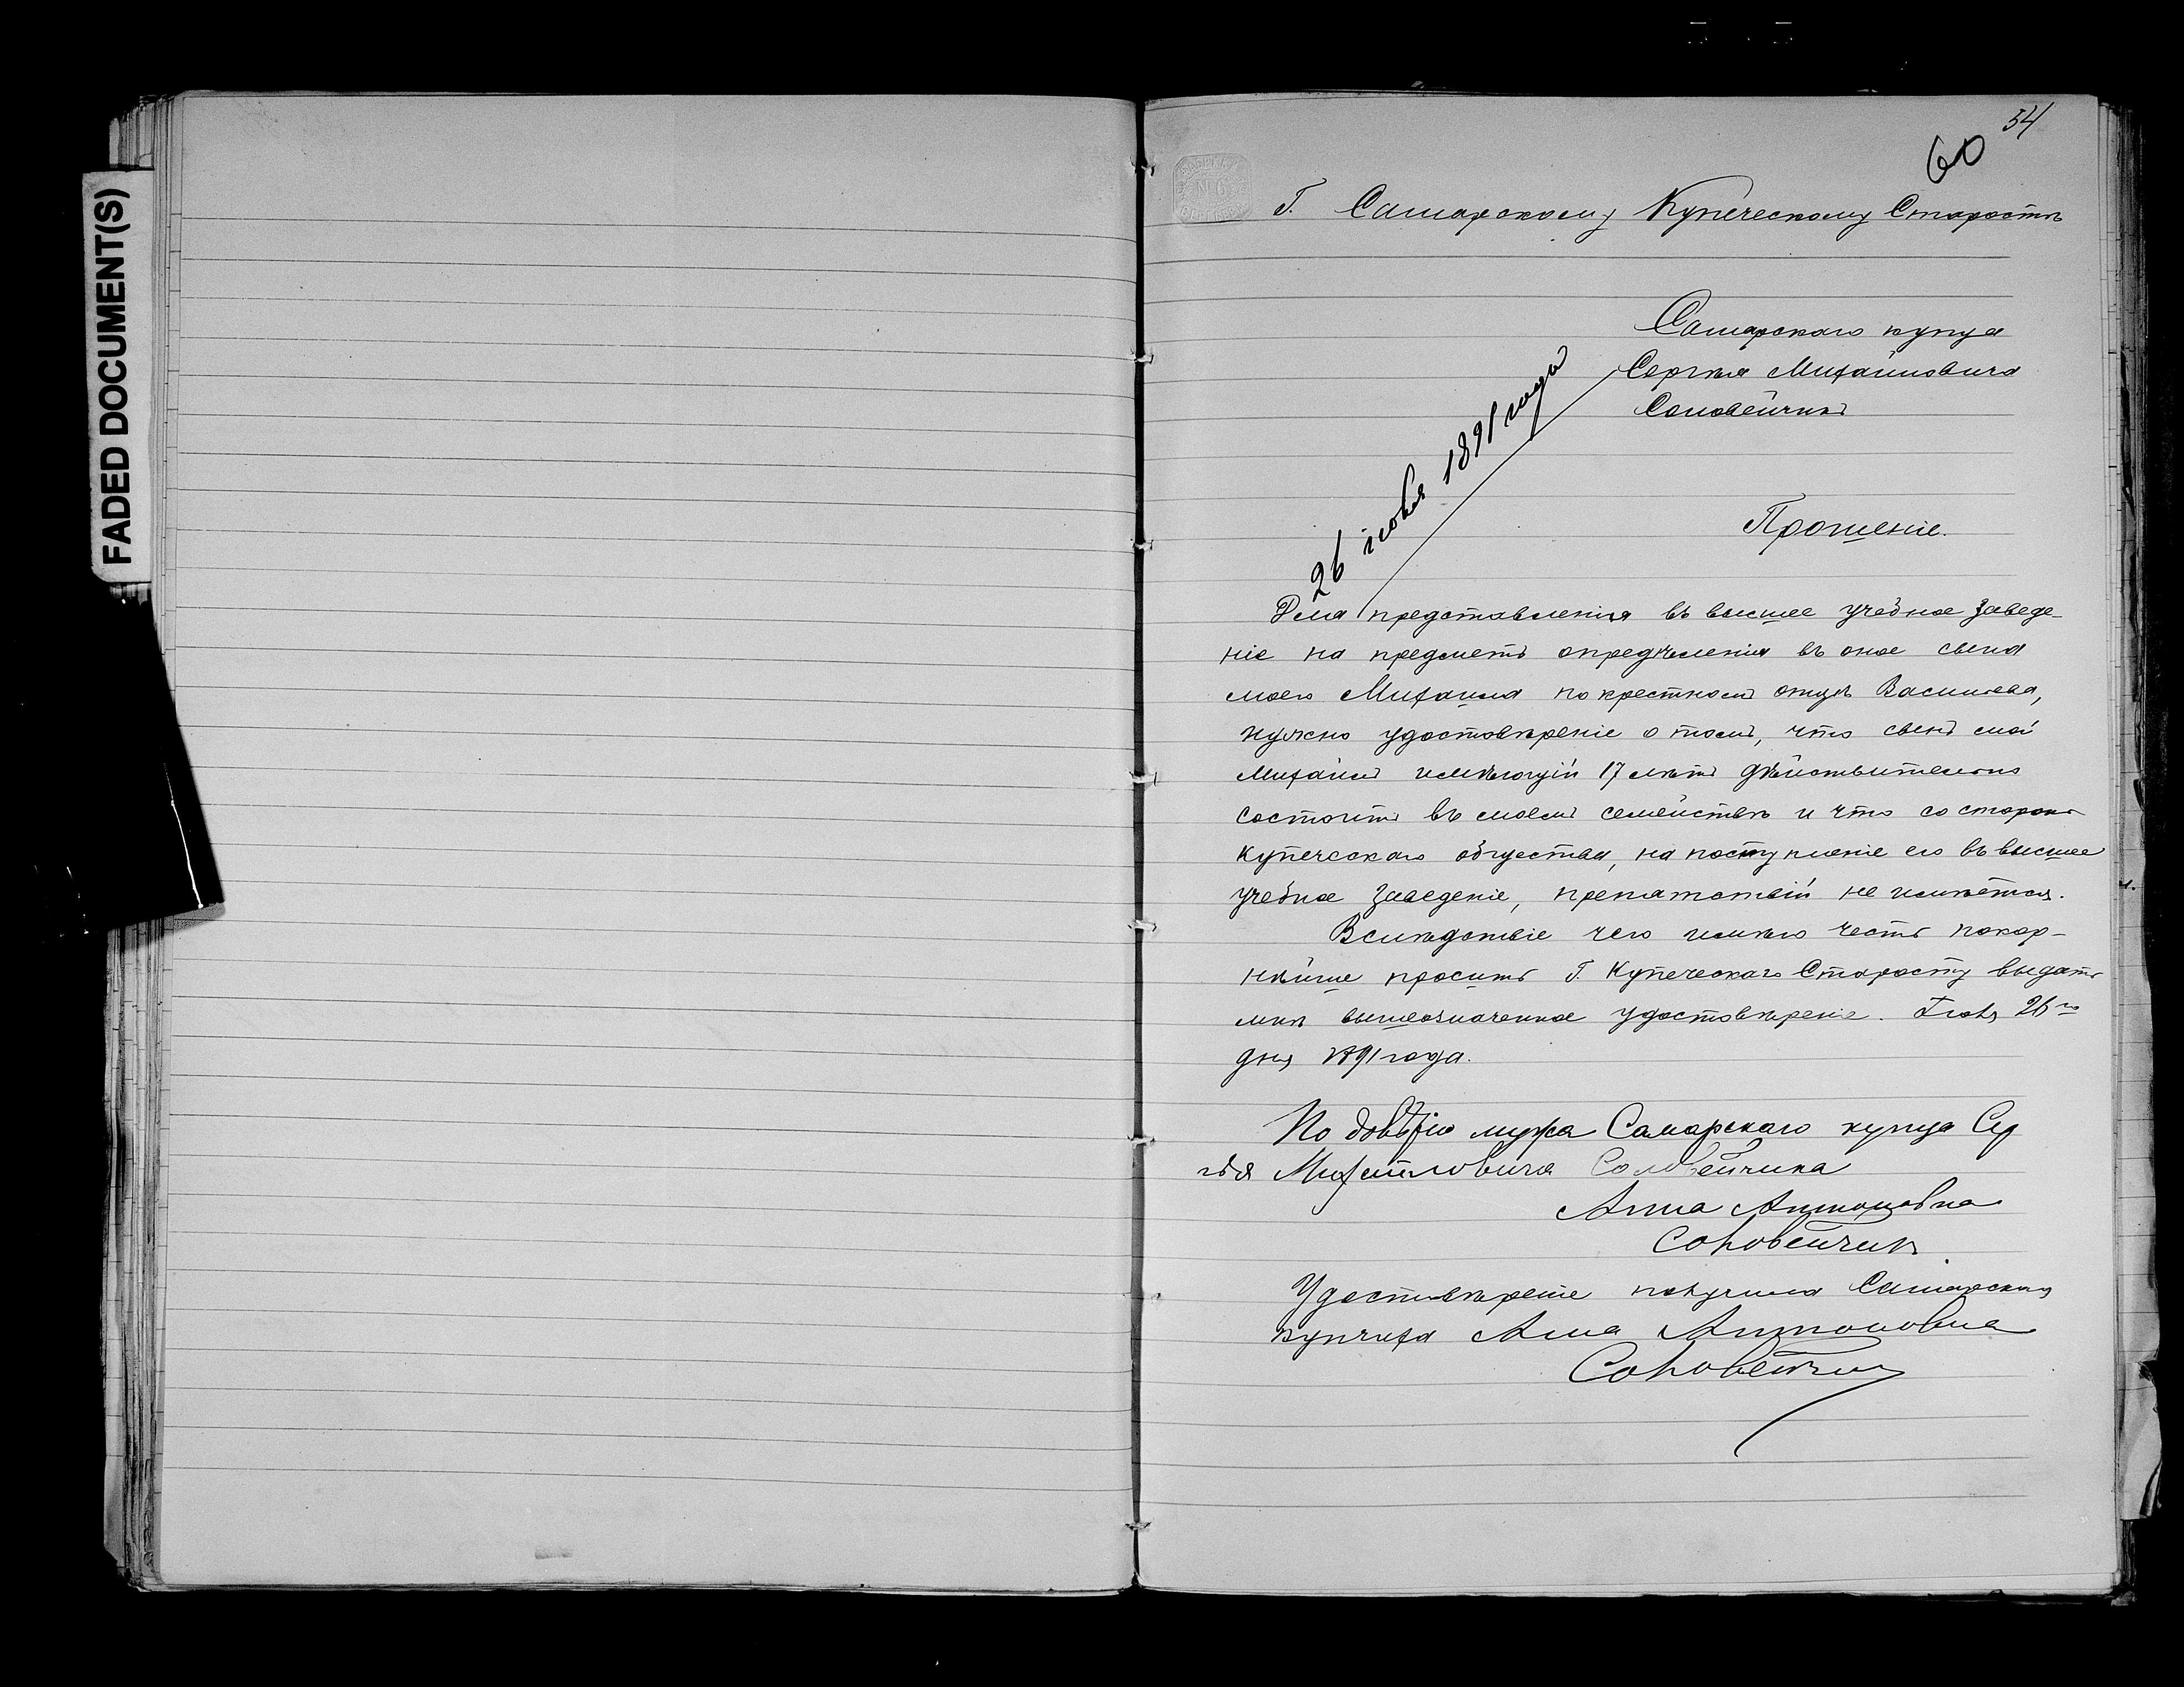 FADED DOCUMENT(S)
54
60
№ 6
Г. Самарскому Купеческому Старостѣ
Самарскаго купца
Сергѣя Михайловича
Соловейчикъ
26 Іюля 1891 года
Прошеніе.
Для представленія въ высшее учебное заведе-
ніе на предметъ опредѣленія въ оное сына
моего Михаила по крестному отцѣ Васильева,
нужно удостовѣреніе о томъ, что сынъ мой
Михаилъ имѣющій 17 лѣтъ дѣйствительно
состоитъ въ моемъ семействѣ и что со стороны
купеческаго общества, на поступленіе его въ высшее
учебное заведеніе, препятствій не имѣется.
Вслѣдствіе чего имѣю честь покор-
нѣйше просить Г. Купеческаго Старосту выдать
мнѣ вышеозначенное удостовѣреніе. Іюля 26го
дня 1891 года.
По довѣрію мужа Самарскаго купца Сер
гѣя Михайловича Соловейчика
Анна Антоновна
Соловейчикъ
Удостовѣреніе получила Самарская
купчиха Анна Антоновна
Соловейчикъ